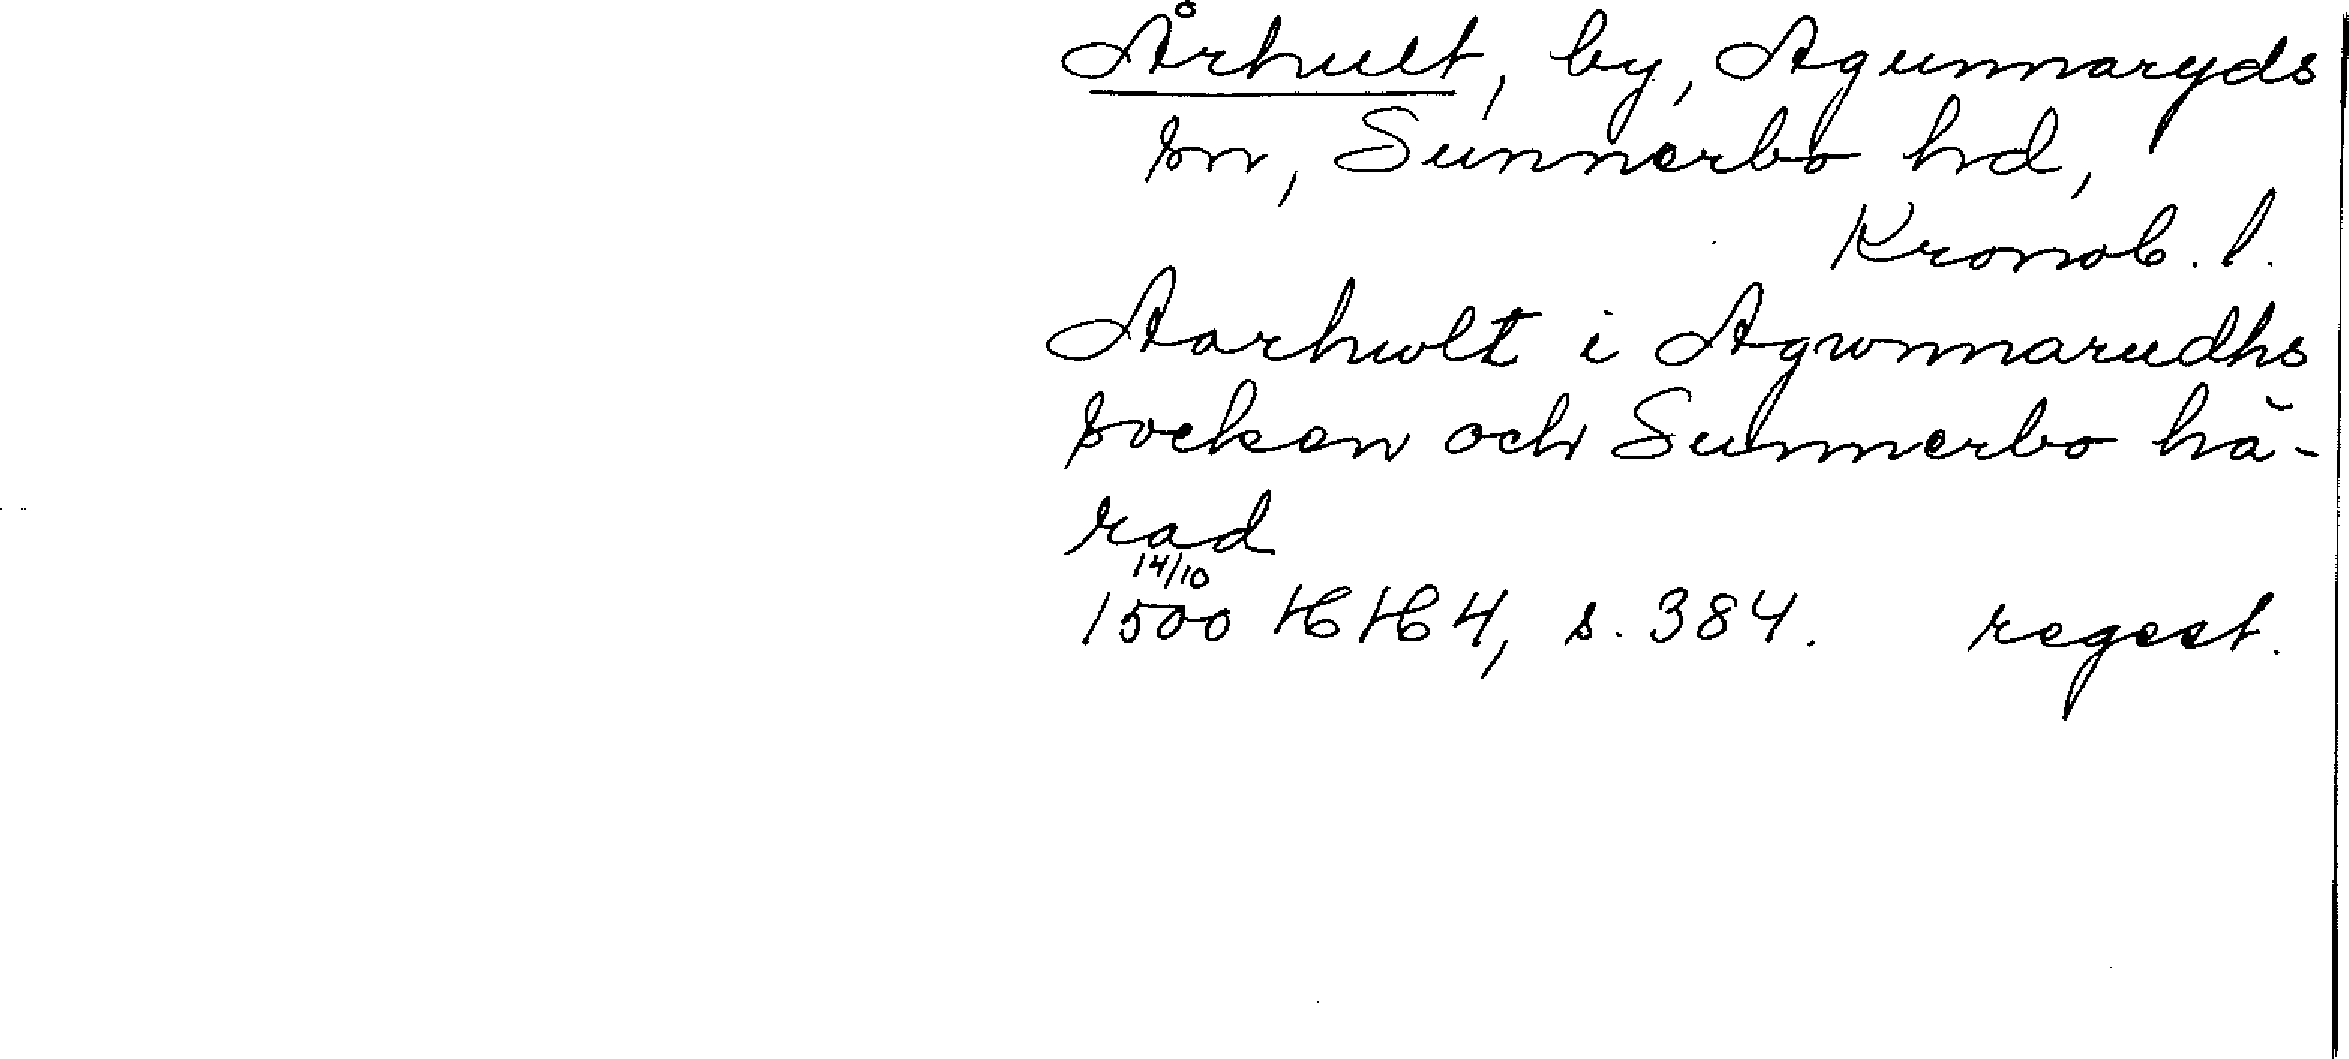 Århult, by, Agunnaryds
sn, Sunnerbo hd,
Kronob. l.
Aarhwlt i Agwnnarudhs
socken och Sunnerbo hä-
rad
14/10
1500 HH 4, s. 384. regest.